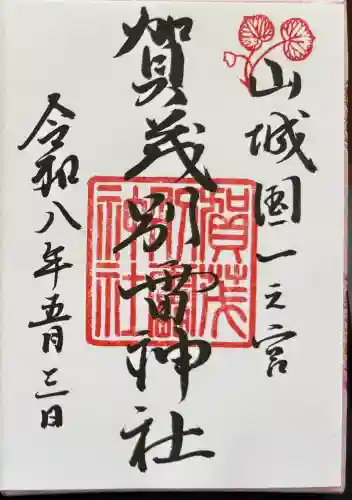 山城国一之宮
賀茂別雷神社
賀茂
別雷
神社
令和八年五月三日